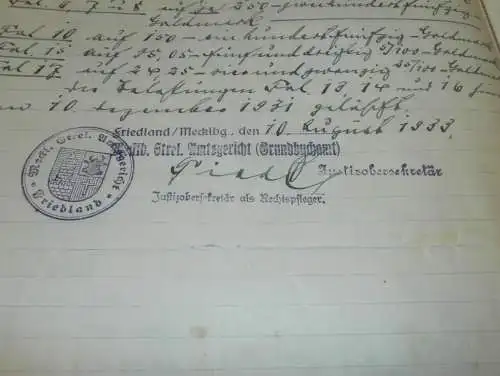 auf je 250 - zweihundertfünfzig -
Goldmark
Fol. 10 auf 150 - einhundertfünfzig - Goldmark
Fol. 15 auf 35,05 - fünfunddreißig 5/100 - Goldmark
Fol. 17 auf 24,25 - vierundzwanzig 25/100 - Goldmark
die Belastungen Fol. 13, 14 und 16 sind
am 10 Dezember 1931 gelöscht.
Friedland/Mecklbg. den 10. August 1933.
Strel. Amtsgericht (Grundbuchamt)
Justizobersekretär
Justizobersekretär als Rechtspfleger.
Meckl. Strel. Amtsgericht
Friedland